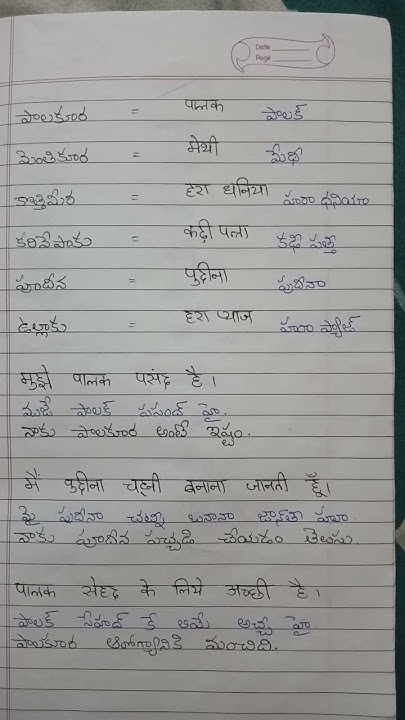 Date
Page
పాలకూర = पालक పాలక్
మెంతికూర = मेथी మేథీ
కొత్తిమీర = हरा धनिया హరా ధనియా
కరివేపాకు = कढ़ी पत्ता కఢీ పత్తా
పూదీన = पुदीना పుదీనా
ఉల్లాకు = हरा प्याज హరా ప్యాజ్
मुझे पालक पसंद है।
ముజే పాలక్ పసంద్ హై.
నాకు పాలకూర అంటే ఇష్టం.
मैं पुदीना चट्नी बनाना जानती हूँ।
మై పుదీనా చట్నీ బనానా జాన్తీ హూఁ
నాకు పూదీన పచ్చడి చేయడం తెలుసు.
पालक सेहद के लिये अच्छी है।
పాలక్ సేహద్ కే లియే అచ్ఛీ హై.
పాలకూర ఆరోగ్యానికి మంచిది.